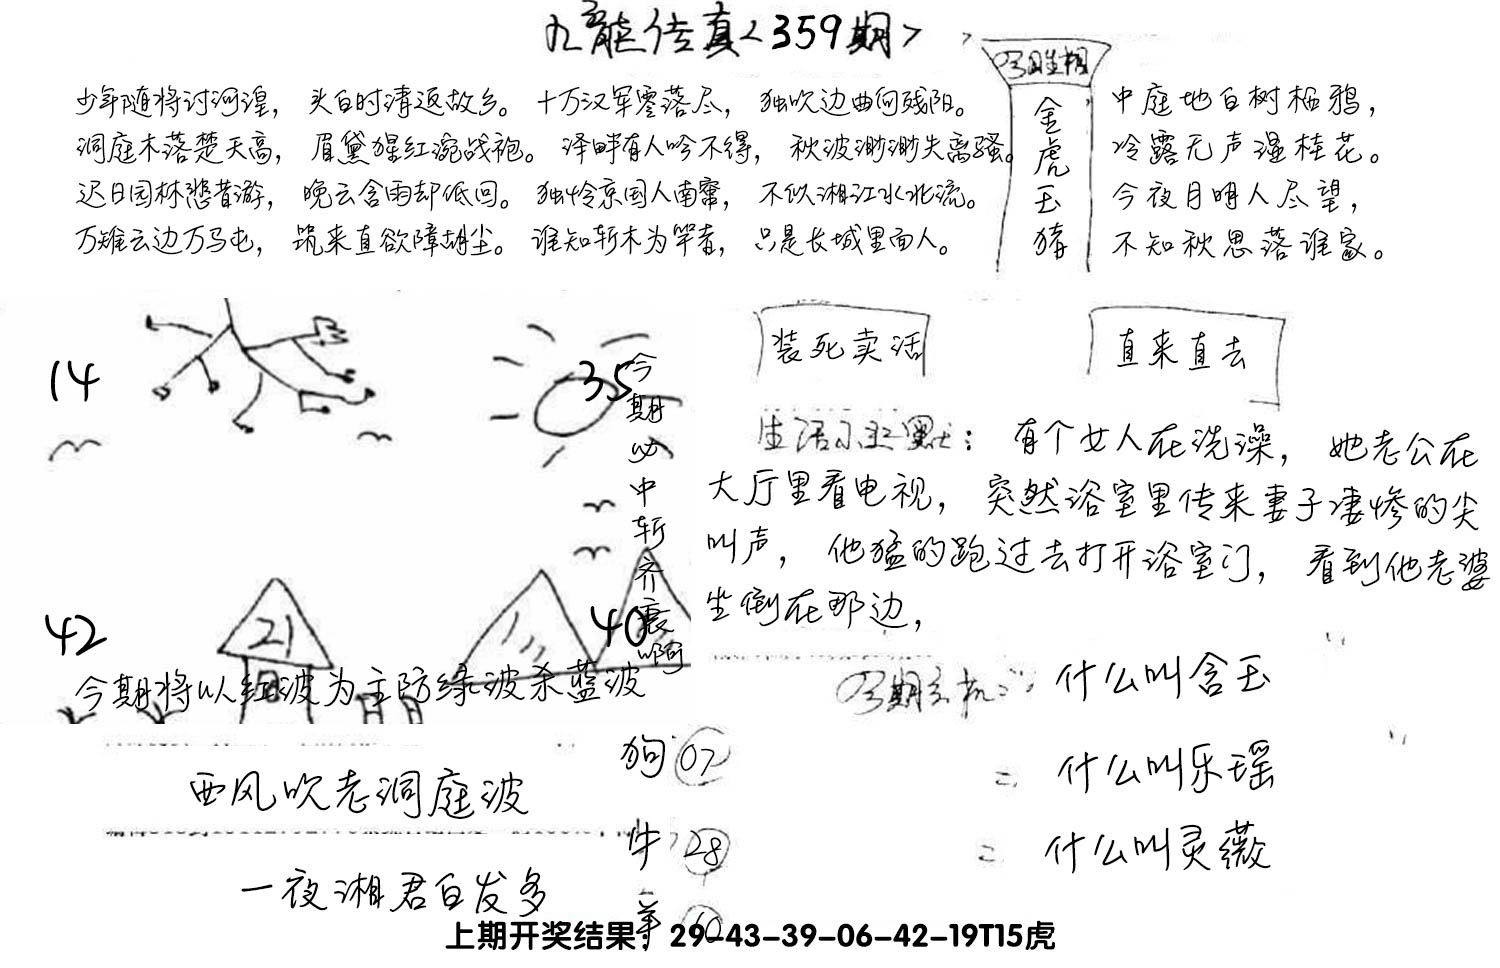 九龙传真<359期>
少年随将讨河湟，头白时清返故乡。十万汉军零落尽，独吹边曲向残阳。
洞庭木落楚天高，眉黛猩红涴战袍。泽畔有人吟不得，秋波渺渺失离骚。
迟日园林悲昔游，晚云含雨却低回。独怜京国人南窜，不似湘江水北流。
万雉云边万马屯，筑来直欲障胡尘。谁知斩木为竿者，只是长城里面人。
今期生相
金虎玉猪
中庭地白树栖鸦，
冷露无声湿桂花。
今夜月明人尽望，
不知秋思落谁家。
14
35
今期必中斩齐襄啊
42
21
40
今期将以红波为主防绿波杀蓝波
装死卖活
直来直去
生活小幽默：有个女人在洗澡，她老公在
大厅里看电视，突然浴室里传来妻子凄惨的尖
叫声，他猛的跑过去打开浴室门，看到他老婆
坐倒在那边，
今期玄机：什么叫含玉
二 什么叫乐瑶
二 什么叫灵薇
西风吹老洞庭波
一夜湘君白发多
狗 07
牛 28
羊
上期开奖结果：29-43-39-06-42-19T15虎